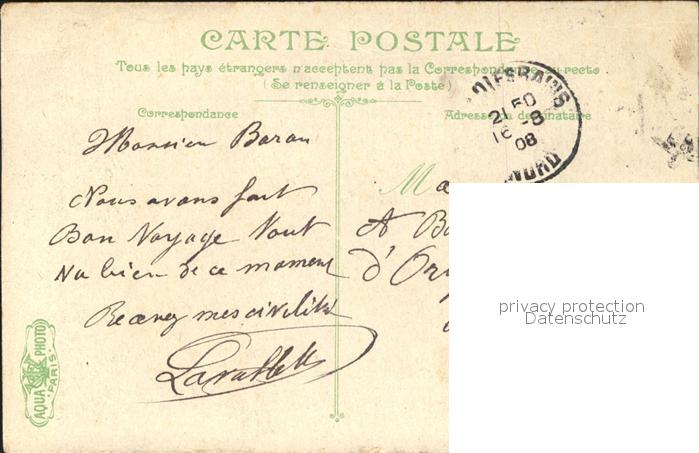 CARTE POSTALE
Tous les pays étrangers n'acceptent pas la Correspondance au recto
(Se renseigner à la Poste)
Correspondance
Adresse du destinataire
21 50
16 -8
08
NORD
Monsieur Baron
Nous avons fait
Bon Voyage Tout
Va bien de ce moment
Recevez mes civilités
M
A B
d'Or
AQUA PHOTO
PARIS
privacy protection
Datenschutz